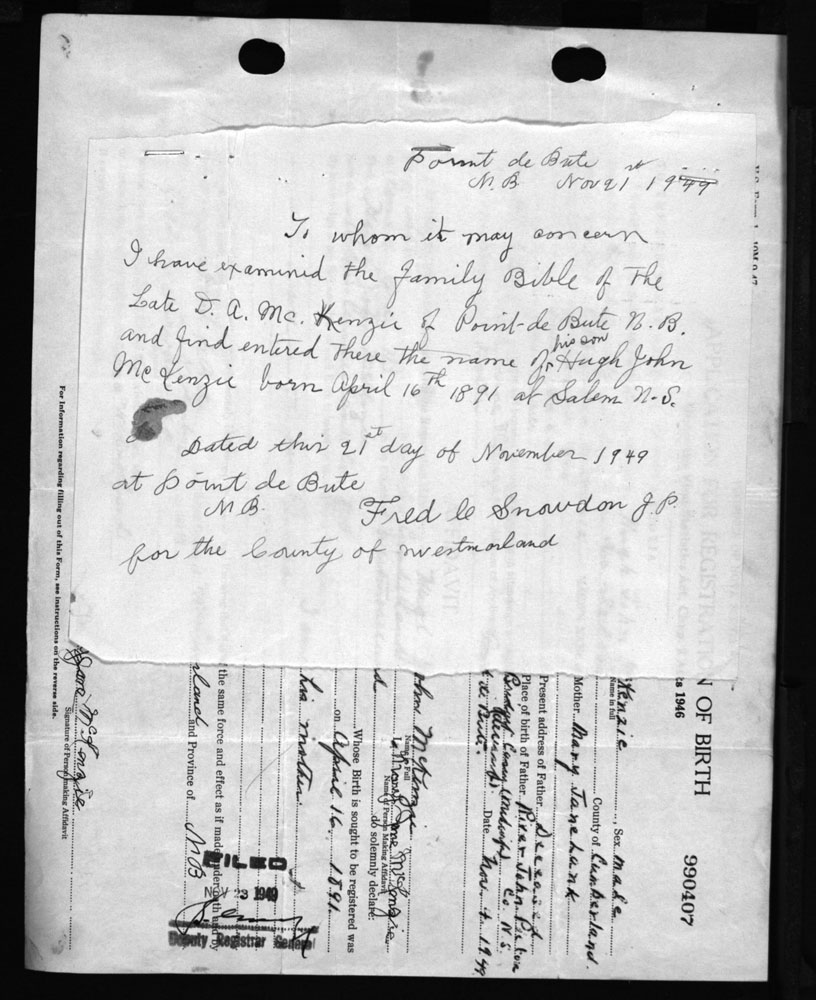 Point de Bute
N.B. Nov 21st 1949
To whom it may concern
I have examined the family Bible of the
Late D. A. Mc. Kenzie of Point-de Bute N.B.
and find entered there the name of his son Hugh John
McKenzie born April 16th 1891 at Salem N.S.
Dated this 21st day of November 1949
at Point de Bute
N.B. Fred C Snowdon J.P.
for the County of Westmorland
N OF BIRTH
990407
ts 1946
Kenzie Sex Male
Name in full
County of Cumberland.
Mother Mary Jane
Present address of Father Deceased
Place of birth of Father River John Pictou
Co. N.S.
Date Nov. 4. 1949
John McKenzie
Name in Full
Jane McKenzie
Name of Person Making Affidavit
do solemnly declare:
Whose Birth is sought to be registered was
on April 16 1891.
his mother
the same force and effect as if made under oath and by
rland and Province of N B
FILED
NOV 23 1949
Deputy Registrar General
Jane McKenzie
Signature of Person making Affidavit
For Information regarding filling out of this Form, see Instructions on the reverse side.